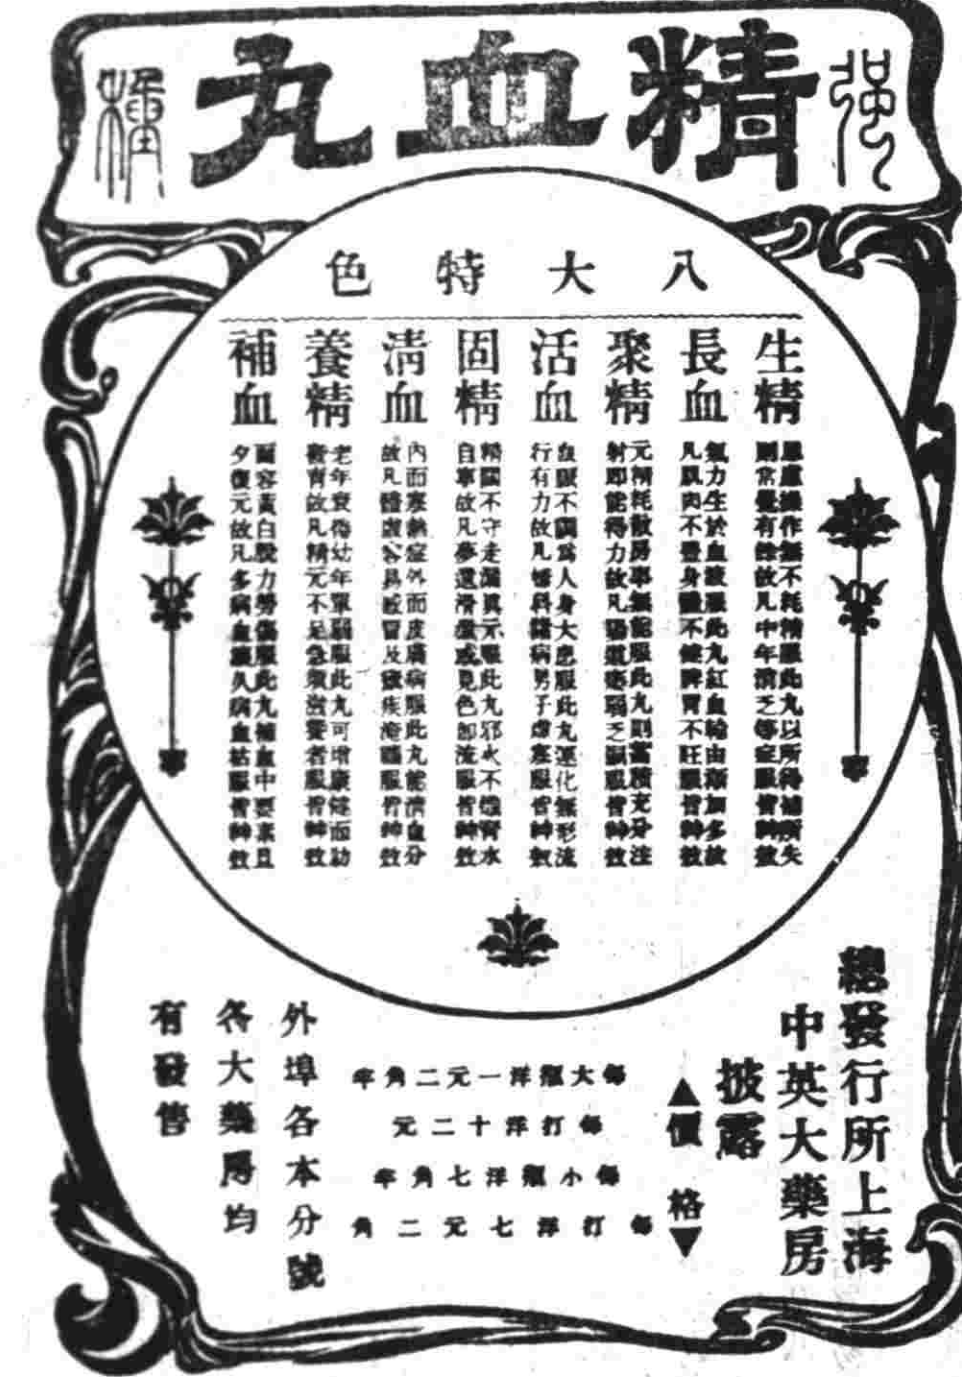 强種
精血丸
八大特色
生精
思慮操作無不耗精服此丸以所得補所失
則常覺有餘故凡中年漬乏等症服皆神效
長血
氣力生於血液服此丸紅血輪由漸加多故
凡肌肉不豐身體不健脾胃不旺服皆神效
聚精
元精耗散房事無能服此丸則蓄積充分注
射即能得力故凡陽道痿弱乏嗣服皆神效
活血
血脈不調為人身大患服此丸運化無形流
行有力故凡婦科諸病男子虛塞服皆神效
固精
精關不守走漏眞元服此丸邪火不熾腎水
自寧故凡夢遺滑洩或見色卽流服皆神效
淸血
內而寒熱症外而皮膚病服此丸能淸血分
故凡體虛容易感冒及瘡疾淹纏服皆神效
養精
老年衰憊幼年單弱服此丸可增康健而助
發育故凡精元不足急須滋養者服皆神效
補血
面容黃白脫力勞傷服此丸補血中要素且
夕復元故凡多病血虧久病血枯服皆神效
總發行所上海
中英大藥房
披露
▲價格▼
每大瓶洋一元二角半
每打洋十二元
每小瓶洋七角半
每打洋七元二角
外埠各本分號
各大藥房均
有發售